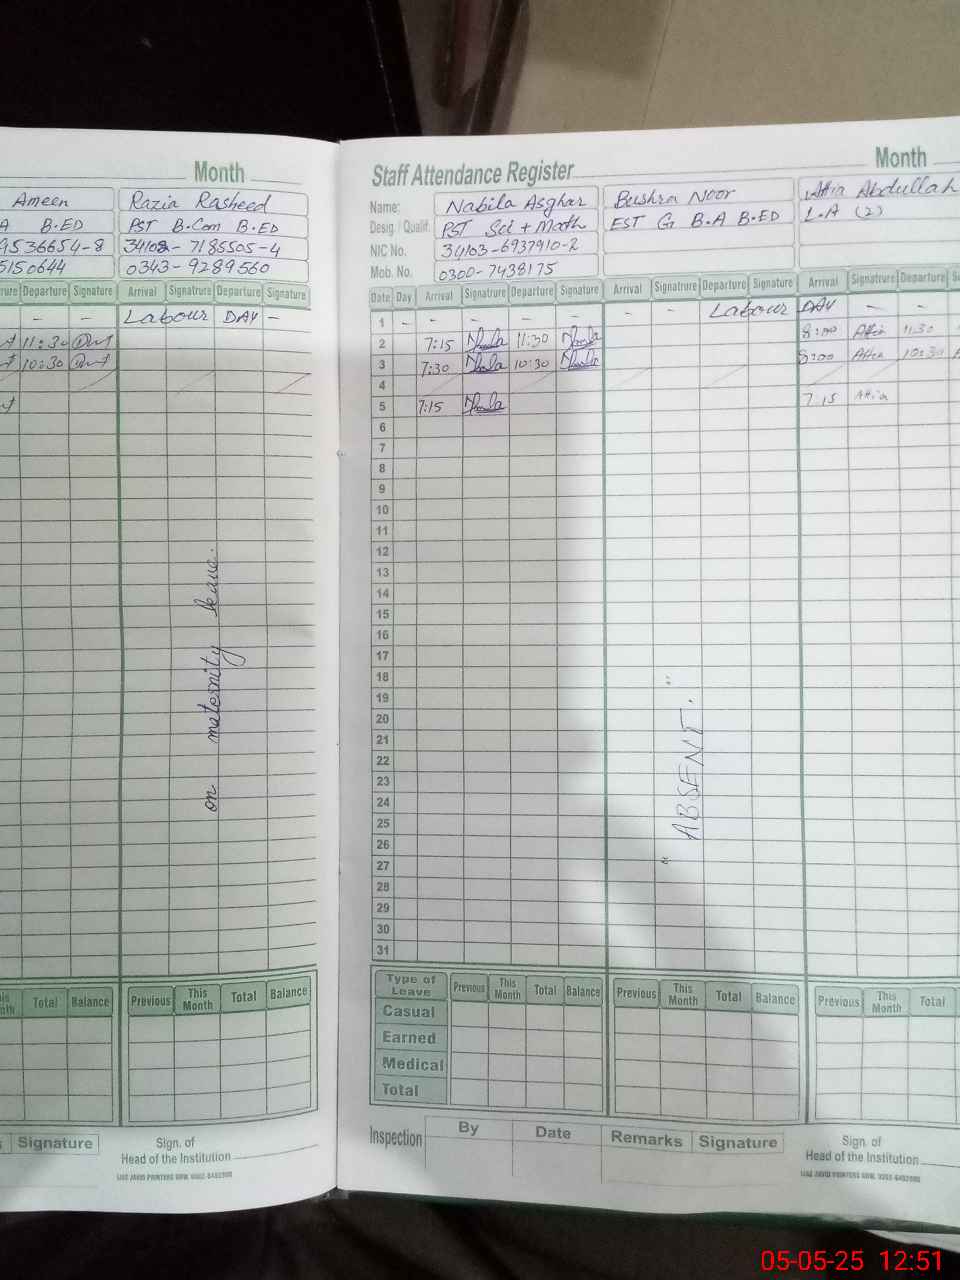 Month
Ameen
Razia Rasheed
A B.ED
PST B.Com B.ED
9536654-8
34102-7185505-4
5150644
0343-9289560
Departure Signature Arrival Signatrure Departure Signature
- - Labour DAY -
11:30
10:30
on maternity leave.
Total Balance Previous This Month Total Balance
Signature
Sign. of
Head of the Institution
Staff Attendance Register
Month
Name: Nabila Asghar Bushra Noor Attia Abdullah
Desig. / Qualif. PST Sci + Math EST G B.A B.ED L.A (2)
NIC No. 34103-6937910-2
Mob. No. 0300-7438175
Date Day Arrival Signatrure Departure Signature Arrival Signatrure Departure Signature Arrival Signatrure Departure
1 - - - - - - - Labour DAY - -
2 7:15 Nabila 11:30 Nabila 8:00 Attia 11:30
3 7:30 Nabila 10:30 Nabila 8:00 Attia 10:30
4
5 7:15 Nabila 7:15 Attia
6
7
8
9
10
11
12
13
14
15
16
17
18
19
20
21
22
23
24
25
26
27
28
29
30
31
"ABSENT."
Type of Leave Previous This Month Total Balance Previous This Month Total Balance Previous This Month Total
Casual
Earned
Medical
Total
Inspection By Date Remarks Signature
Sign. of
Head of the Institution
05-05-25 12:51